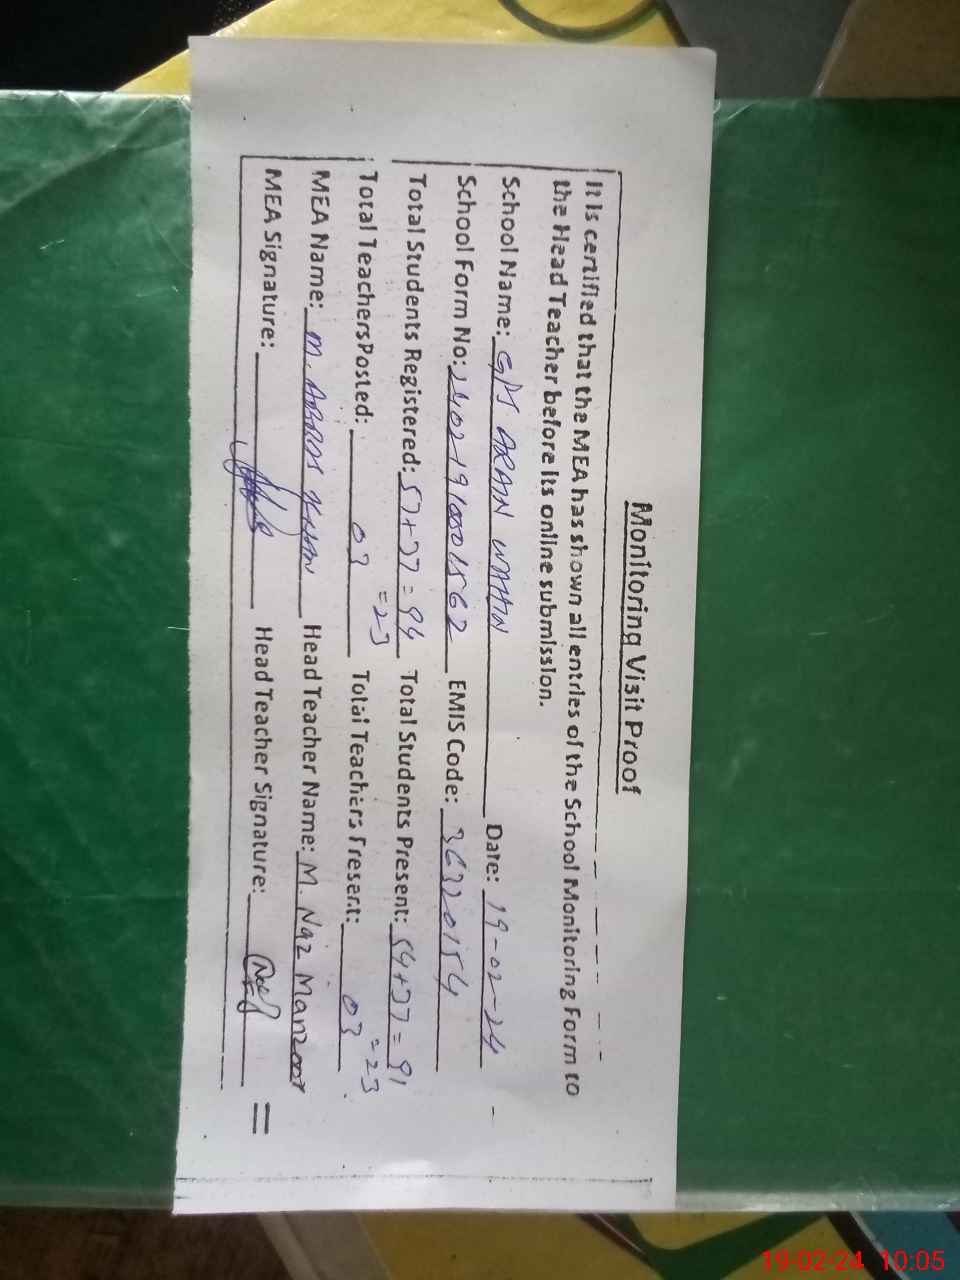 Monitoring Visit Proof
It is certified that the MEA has shown all entries of the School Monitoring Form to
the Head Teacher before its online submission.
School Name: GPS ARAIN WAHIN Date: 19-02-24
School Form No: 24021910001562 EMIS Code: 36320154
Total Students Registered: 57+37=94 Total Students Present: 54+37=91
=23 =23
Total Teachers Posted: 03 Total Teachers Present: 03
MEA Name: M. ABROS KHAN Head Teacher Name: M. Naz Manzoor
MEA Signature: Head Teacher Signature:
19-02-24 10:05